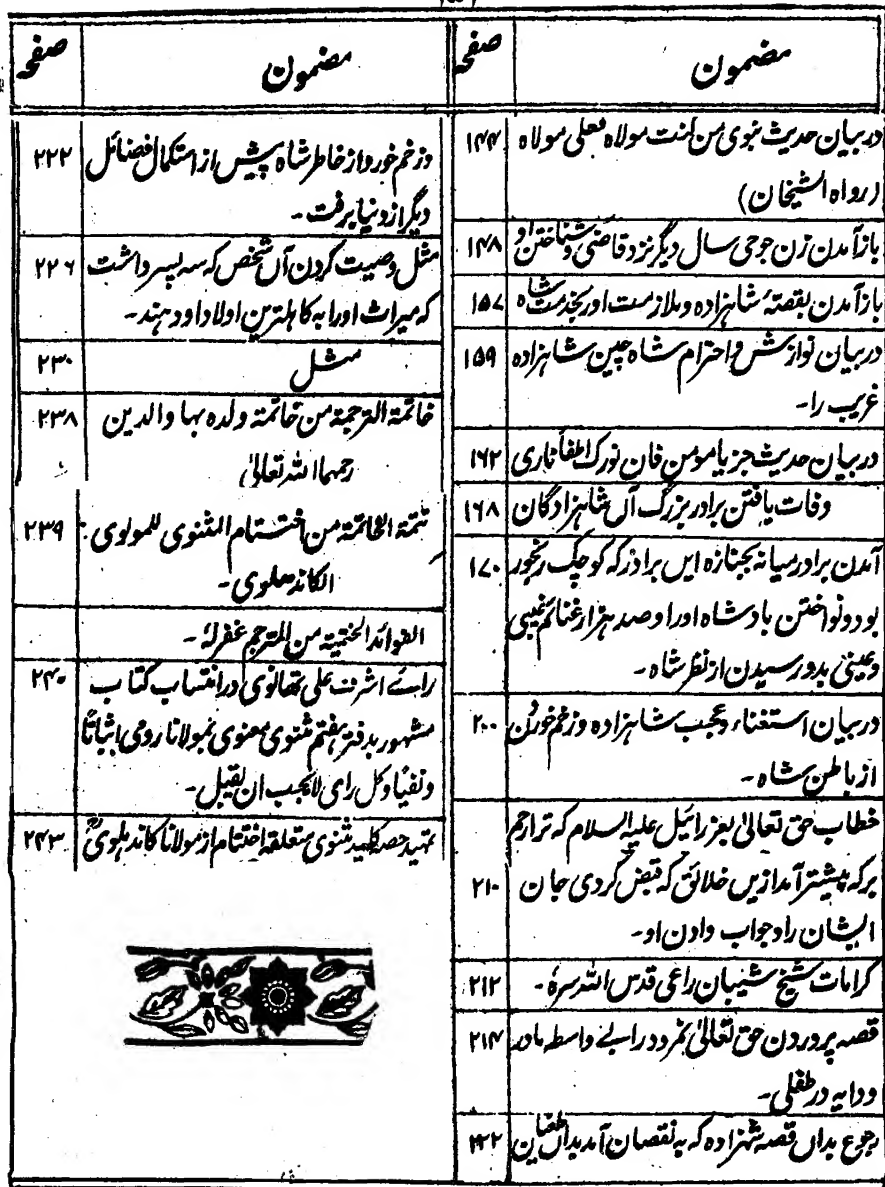 مضمون صفحہ
در بیان حدیث نبوی من کنت مولاہ فعلی مولاہ ۱۴۴
(رواہ الشیخان)
باز آمدن زن جوحی سال دیگر نزد قاضی و شناختن او ۱۴۸
باز آمدن بقصتہ شاہزادہ و ملازمت او بخدمت شاہ ۱۵۷
در بیان نوازش و احترام شاہ چین شاہزادہ ۱۵۹
غریب را۔
در بیان حدیث جز یا مومن فان نورک اطفأ ناری ۱۶۲
وفات یافتن برادر بزرگ آں شاہزادگان ۱۶۸
آمدن برادر میانہ بجنازہ ایں برادر کہ کوچک رنجور ۱۷۰
بود و نواختن بادشاہ او را و صد ہزار غنائم غیبی
و عینی بدو رسیدن از نظر شاہ۔
در بیان استغناء و عجب شاہزادہ و زخم خوردن ۲۰۰
از باطن شاہ۔
خطاب حق تعالیٰ بعزرائیل علیہ السلام کہ ترا رحم
برکہ بیشتر آمد ازیں خلائق کہ قبض کردی جان ۲۱۰
ایشان را و جواب دادن او۔
کرامات شیخ شیبان راعی قدس اللہ سرہٗ۔ ۲۱۲
قصہ پروردن حق تعالیٰ نمرود را بے واسطہ مادر ۲۱۴
و دایہ در طفلی۔
رجوع بداں قصہ شہزادہ کہ بہ نقصان آمد بداں طغیان ۲۲۲
مضمون صفحہ
و زخم خورد از خاطر شاہ پیش از استکمال فضائل ۲۲۲
دیگر از دنیا برفت۔
مثل وصیت کردن آں شخص کہ سہ پسر داشت ۲۲۶
کہ میراث او را بہ کاہلترین اولاد او دہند۔
مثل ۲۳۰
خاتمۃ الترجمۃ من خاتمۃ ولدہ بہاء الدین ۲۳۸
رحمہما اللہ تعالیٰ
تتمۃ الخاتمۃ من اختتام المثنوی للمولوی ۲۳۹
الکاندھلوی۔
الفوائد الختمیۃ من المترجم غفرلہٗ۔
رائے اشرف علی تھانوی در انتساب کتاب ۲۴۰
مشہور بدفتر ہفتم مثنوی معنوی بمولانا رومی اثباتاً
و نفیاً و کل رای لا یجب ان یقبل۔
تمہید حصہ کلید مثنوی متعلقہ اختتام از مولانا کاندہلویؒ ۲۴۳